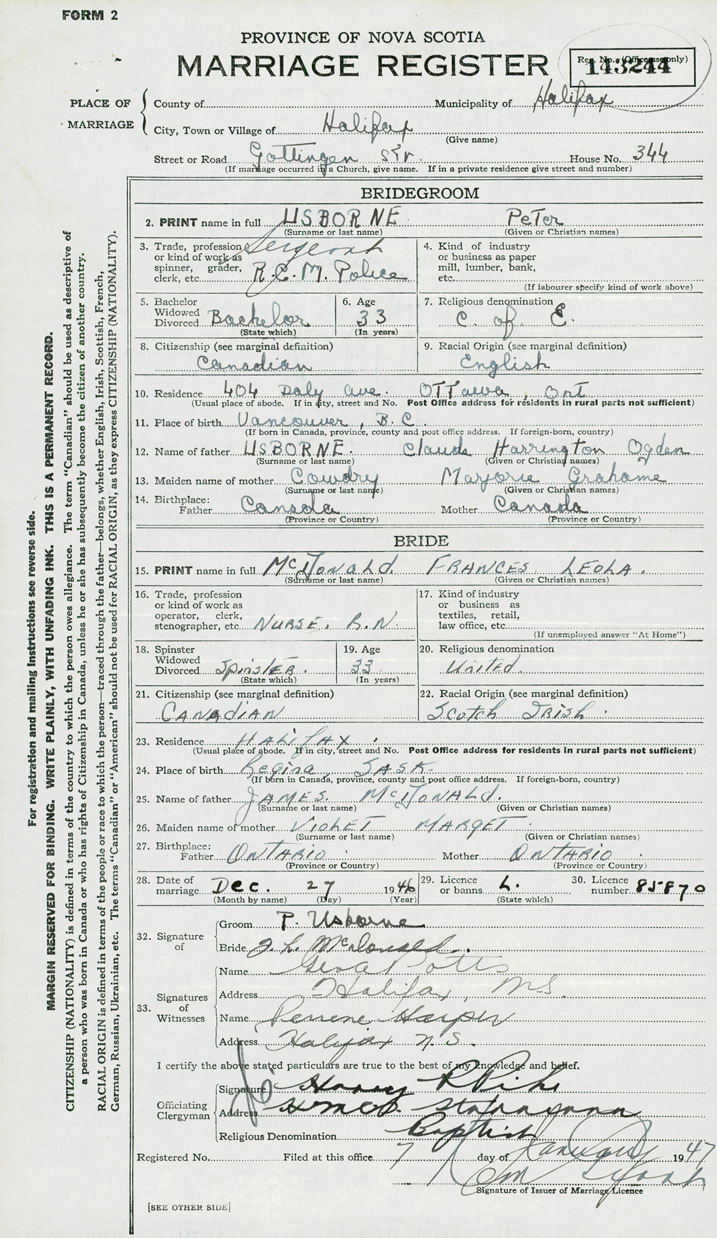 FORM 2
PROVINCE OF NOVA SCOTIA
MARRIAGE REGISTER
Reg. No. (Office use only)
143244
PLACE OF MARRIAGE
County of
Municipality of Halifax
City, Town or Village of Halifax
(Give name)
Street or Road Gottingen Str. House No. 344
(If marriage occurred in a Church, give name. If in a private residence give street and number)
BRIDEGROOM
2. PRINT name in full USBORNE Peter
(Surname or last name) (Given or Christian names)
3. Trade, profession or kind of work as spinner, grader, clerk, etc. Sergeant R.C.M. Police
4. Kind of industry or business as paper mill, lumber, bank, etc.
(If labourer specify kind of work above)
5. Bachelor Widowed Divorced Bachelor
(State which)
6. Age 33
(In years)
7. Religious denomination C. of E.
8. Citizenship (see marginal definition) Canadian
9. Racial Origin (see marginal definition) English
10. Residence 404 Daly Ave. Ottawa, Ont
(Usual place of abode. If in city, street and No. Post Office address for residents in rural parts not sufficient)
11. Place of birth Vancouver, B.C.
(If born in Canada, province, county and post office address. If foreign-born, country)
12. Name of father USBORNE Claude Harrington Ogden
(Surname or last name) (Given or Christian names)
13. Maiden name of mother Cowdry Marjorie Grahame
(Surname or last name) (Given or Christian names)
14. Birthplace: Father Canada Mother Canada
(Province or Country) (Province or Country)
BRIDE
15. PRINT name in full McDonald FRANCES LEOLA.
(Surname or last name) (Given or Christian names)
16. Trade, profession or kind of work as operator, clerk, stenographer, etc. NURSE. R.N.
17. Kind of industry or business as textiles, retail, law office, etc.
(If unemployed answer "At Home")
18. Spinster Widowed Divorced Spinster.
(State which)
19. Age 33
(In years)
20. Religious denomination United.
21. Citizenship (see marginal definition) CANADIAN
22. Racial Origin (see marginal definition) Scotch Irish.
23. Residence HALIFAX.
(Usual place of abode. If in city, street and No. Post Office address for residents in rural parts not sufficient)
24. Place of birth Regina, SASK.
(If born in Canada, province, county and post office address. If foreign-born, country)
25. Name of father JAMES McDONALD.
(Surname or last name) (Given or Christian names)
26. Maiden name of mother VIOLET MARGET
(Surname or last name) (Given or Christian names)
27. Birthplace: Father ONTARIO Mother ONTARIO
(Province or Country) (Province or Country)
28. Date of marriage Dec. 27 1946 29. Licence or banns L. 30. Licence number 85870
(Month by name) (Day) (Year) (State which)
32. Signature of
Groom P. Usborne
Bride F. L. McDonald.
33. Signatures of Witnesses
Name
Address Halifax, N.S.
Name Harper
Address Halifax N.S.
I certify the above stated particulars are true to the best of my knowledge and belief.
Officiating Clergyman
Signature Harry
Address H.M.C.S. Stadacona
Religious Denomination Baptist
Registered No. Filed at this office 7 day of January 1947
Signature of Issuer of Marriage Licence
[SEE OTHER SIDE]
For registration and mailing instructions see reverse side.
MARGIN RESERVED FOR BINDING. WRITE PLAINLY, WITH UNFADING INK. THIS IS A PERMANENT RECORD.
CITIZENSHIP (NATIONALITY) is defined in terms of the country to which the person owes allegiance. The term "Canadian" should be used as descriptive of
a person who was born in Canada or who has rights of Citizenship in Canada, unless he or she has subsequently become the citizen of another country.
RACIAL ORIGIN is defined in terms of the people or race to which the person—traced through the father—belongs, whether English, Irish, Scottish, French,
German, Russian, Ukrainian, etc. The terms "Canadian" or "American" should not be used for RACIAL ORIGIN, as they express CITIZENSHIP (NATIONALITY).